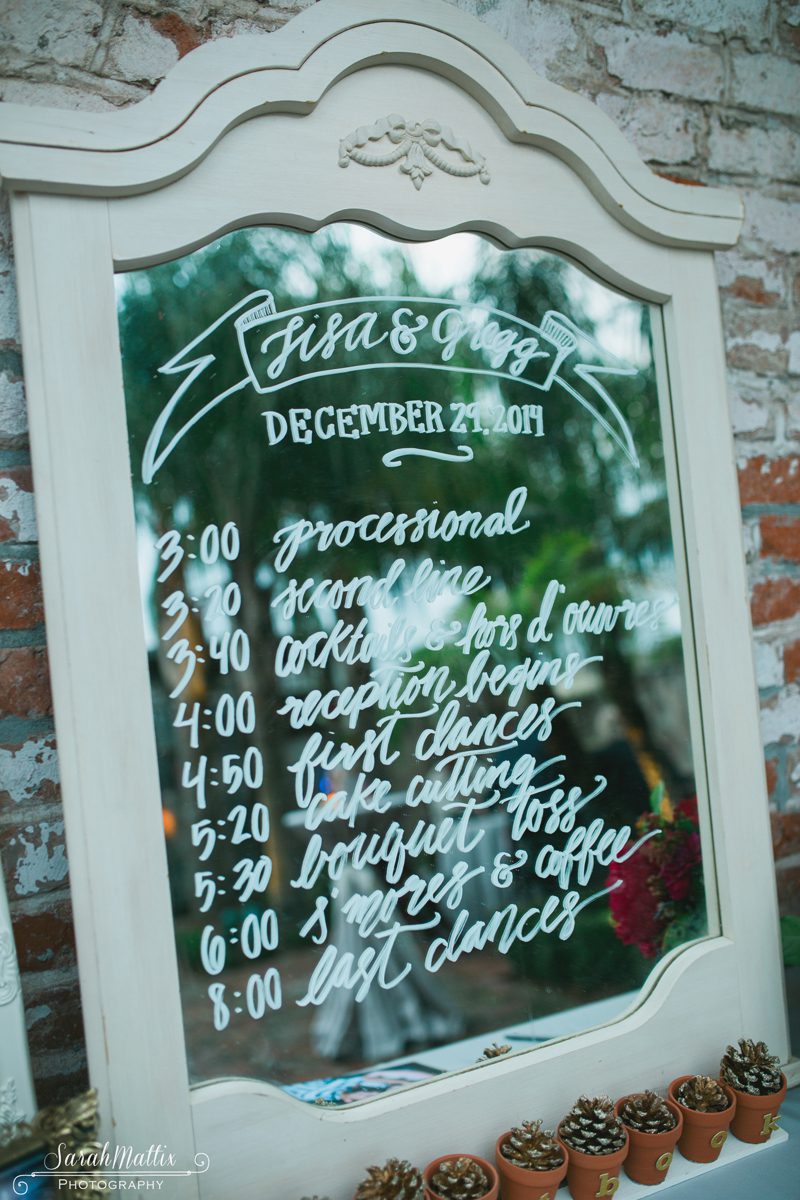 Lisa & Gregg
DECEMBER 29, 2014
3:00 processional
3:20 second line
3:40 cocktails & hors d'ouvres
4:00 reception begins
4:50 first dances
5:20 cake cutting
5:30 bouquet toss
6:00 s'mores & coffee
8:00 last dances
book
SarahMattix
PHOTOGRAPHY